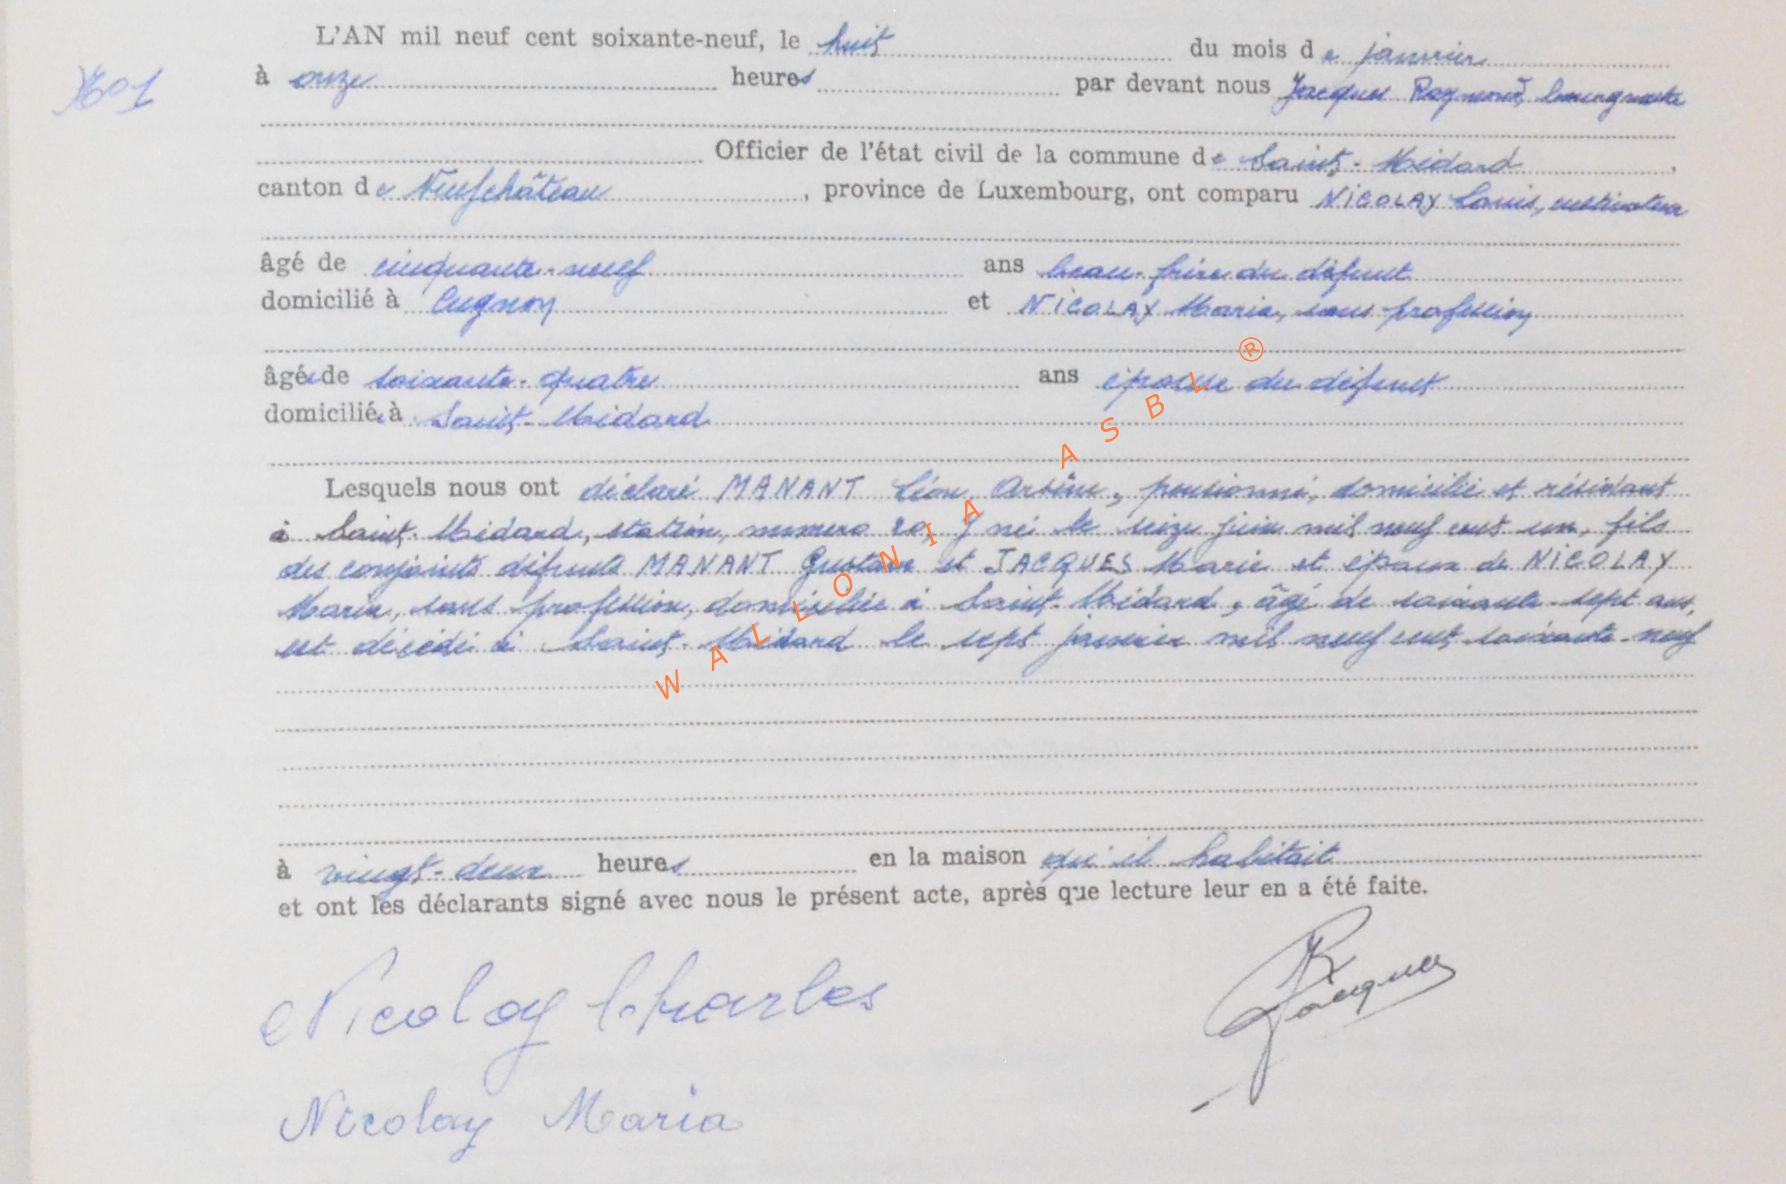 L'AN mil neuf cent soixante-neuf, le huit du mois de janvier
N°1
à onze heures par devant nous Jacques Raymond, bourgmestre
Officier de l'état civil de la commune de Saint-Médard,
canton de Neufchâteau, province de Luxembourg, ont comparu NICOLAY Louis, cultivateur
âgé de cinquante-neuf ans beau-frère du défunt
domicilié à Cugnon et NICOLAY Maria, sans profession
âgée de soixante-quatre ans épouse du défunt
domiciliée à Saint-Médard
Lesquels nous ont déclaré MANANT Léon, Arsène, pensionné, domicilié et résidant
à Saint-Médard, station, numéro 20, y né le seize juin mil neuf cent un, fils
des conjoints défunts MANANT Gustave et JACQUES Marie et époux de NICOLAY
Maria, sans profession, domiciliée à Saint-Médard, âgé de soixante-sept ans,
est décédé à Saint-Médard le sept janvier mil neuf cent soixante-neuf
à vingt-deux heures en la maison qu'il habitait
et ont les déclarants signé avec nous le présent acte, après que lecture leur en a été faite.
Nicolay Charles
R Jacques
Nicolay Maria
WALLONIA ASBL ®